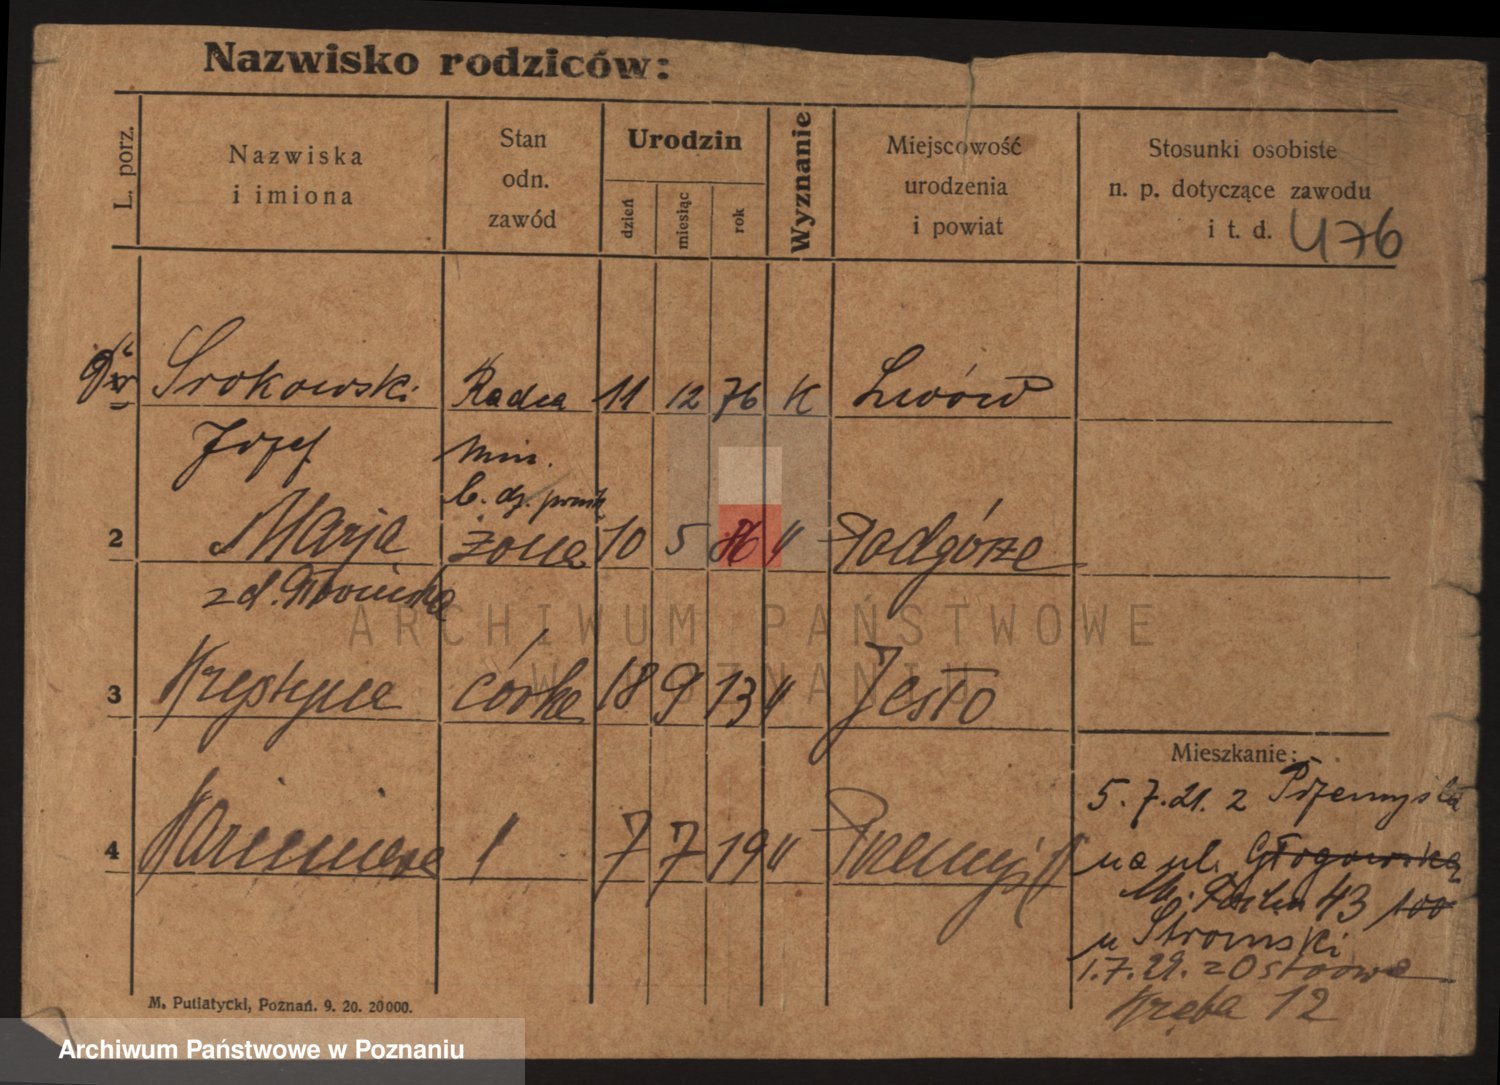 Nazwisko rodziców:
L. porz.
Nazwiska
i imiona
Stan
odn.
zawód
Urodzin
dzień
miesiąc
rok
Wyznanie
Miejscowość
urodzenia
i powiat
Stosunki osobiste
n. p. dotyczące zawodu
i t. d. 476
Dr Srokowski Radca 11 12 76 K Lwów
Józef Min.
b. dz.
2 Marja żona 10 5 86 " Podgórze
z d.
3 Krystyna córka 18 9 13 " Jasło
4 Kazimiera " 7 7 19 " Przemyśl
Mieszkanie:
5.7.21. z Przemyśla
na ul. Głogowską
43 100
u Stromski
1.7.29. z Ostrowa
12
M. Putiatycki, Poznań. 9. 20. 20000.
ARCHIWUM PAŃSTWOWE
W POZNANIU
Archiwum Państwowe w Poznaniu